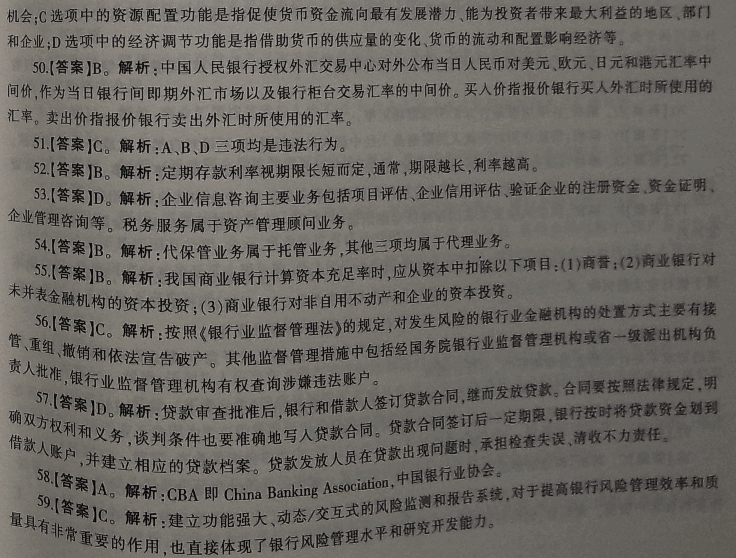 机会;C选项中的资源配置功能是指促使货币资金流向最有发展潜力、能为投资者带来最大利益的地区、部门
和企业;D选项中的经济调节功能是指借助货币的供应量的变化、货币的流动和配置影响经济等。
50.【答案】B。解析:中国人民银行授权外汇交易中心对外公布当日人民币对美元、欧元、日元和港元汇率中
间价,作为当日银行间即期外汇市场以及银行柜台交易汇率的中间价。买入价指报价银行买入外汇时所使用的
汇率。卖出价指报价银行卖出外汇时所使用的汇率。
51.【答案】C。解析:A、B、D三项均是违法行为。
52.【答案】B。解析:定期存款利率视期限长短而定,通常,期限越长,利率越高。
53.【答案】D。解析:企业信息咨询主要业务包括项目评估、企业信用评估、验证企业的注册资金、资金证明、
企业管理咨询等。税务服务属于资产管理顾问业务。
54.【答案】B。解析:代保管业务属于托管业务,其他三项均属于代理业务。
55.【答案】B。解析:我国商业银行计算资本充足率时,应从资本中扣除以下项目:(1)商誉;(2)商业银行对
未并表金融机构的资本投资;(3)商业银行对非自用不动产和企业的资本投资。
56.【答案】C。解析:按照《银行业监督管理法》的规定,对发生风险的银行业金融机构的处置方式主要有接
管、重组、撤销和依法宣告破产。其他监督管理措施中包括经国务院银行业监督管理机构或省一级派出机构负
责人批准,银行业监督管理机构有权查询涉嫌违法账户。
57.【答案】D。解析:贷款审查批准后,银行和借款人签订贷款合同,继而发放贷款。合同要按照法律规定,明
确双方权利和义务,谈判条件也要准确地写入贷款合同。贷款合同签订后一定期限,银行按时将贷款资金划到
借款人账户,并建立相应的贷款档案。贷款发放人员在贷款出现问题时,承担检查失误、清收不力责任。
58.【答案】A。解析:CBA 即 China Banking Association,中国银行业协会。
59.【答案】C。解析:建立功能强大、动态/交互式的风险监测和报告系统,对于提高银行风险管理效率和质
量具有非常重要的作用,也直接体现了银行风险管理水平和研究开发能力。